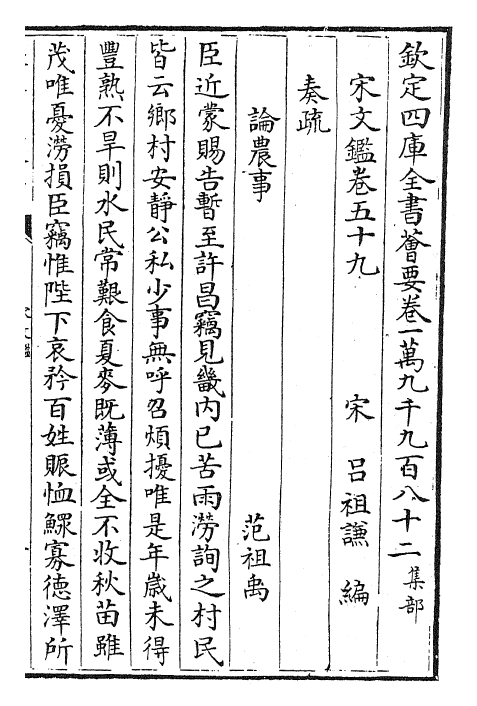 欽定四庫全書薈要卷一萬九千九百八十二集部
宋文鑑卷五十九 宋 呂祖謙 編
奏疏
論農事 范祖禹
臣近蒙賜告暫至許昌竊見畿内已苦雨澇詢之村民
皆云鄉村安靜公私少事無呼召煩擾唯是年歳未得
豐熟不旱則水民常艱食夏麥既薄或全不收秋苗雖
茂唯憂澇損臣竊惟陛下哀矜百姓賑恤鰥寡德澤所